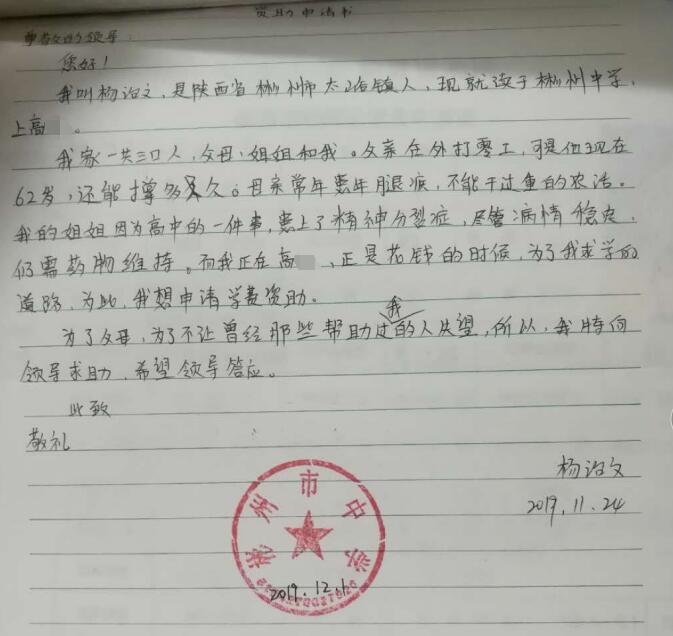 资助申请书
尊敬的领导:
您好!
我叫杨治文,是陕西省彬州市太峪镇人,现就读于彬州中学,
上高 。
我家一共三口人,父母、姐姐和我。父亲在外打零工,可是他现在
62岁,还能撑多久。母亲常年患年腿疾,不能干过重的农活。
我的姐姐因为高中的一件事,患上了精神分裂症,尽管病情稳定,
仍需药物维持。而我正在高 ,正是花钱的时候,为了我求学的
道路,为此,我想申请学费资助。
为了父母,为了不让曾经那些帮助过我的人失望,所以,我特向
领导求助,希望领导答应。
此致
敬礼
杨治文
2019.11.24
彬州市中学
2019.12.1